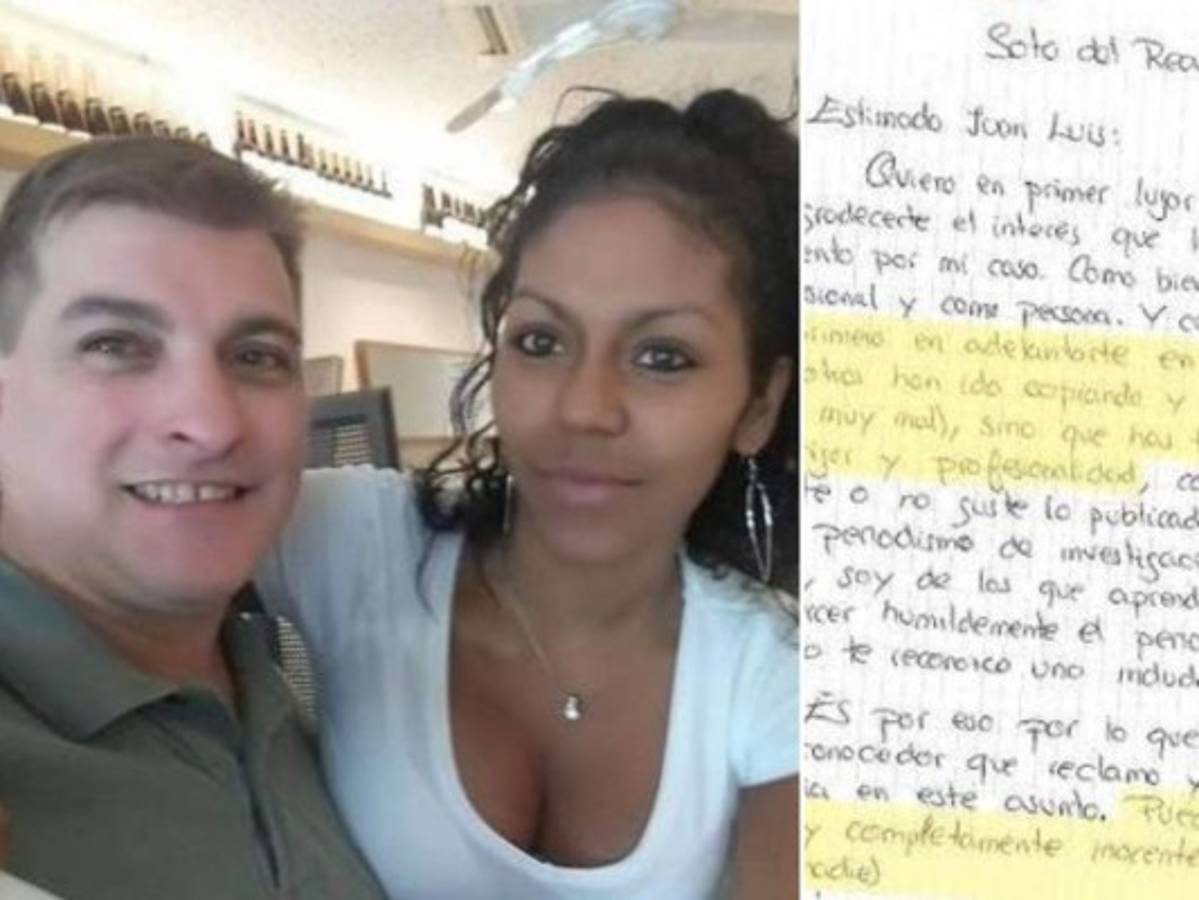 Soto del Rea
Estimado Juan Luis:
Quiero en primer lugar
gradecerte el interés que
ento por mi caso. Como bie
sional y como persona. Y c
rimero en adelantarte en
otros han ido copiando y
muy mal), sino que has
igor y profesionalidad, co
te o no guste lo publicad
periodismo de investigac
, soy de los que aprend
cer humildemente el
o te reconozco una indud
ES por eso por lo que
conocedor que reclamo y
ia en este asunto. Pue
y completamente inocente
nadie)